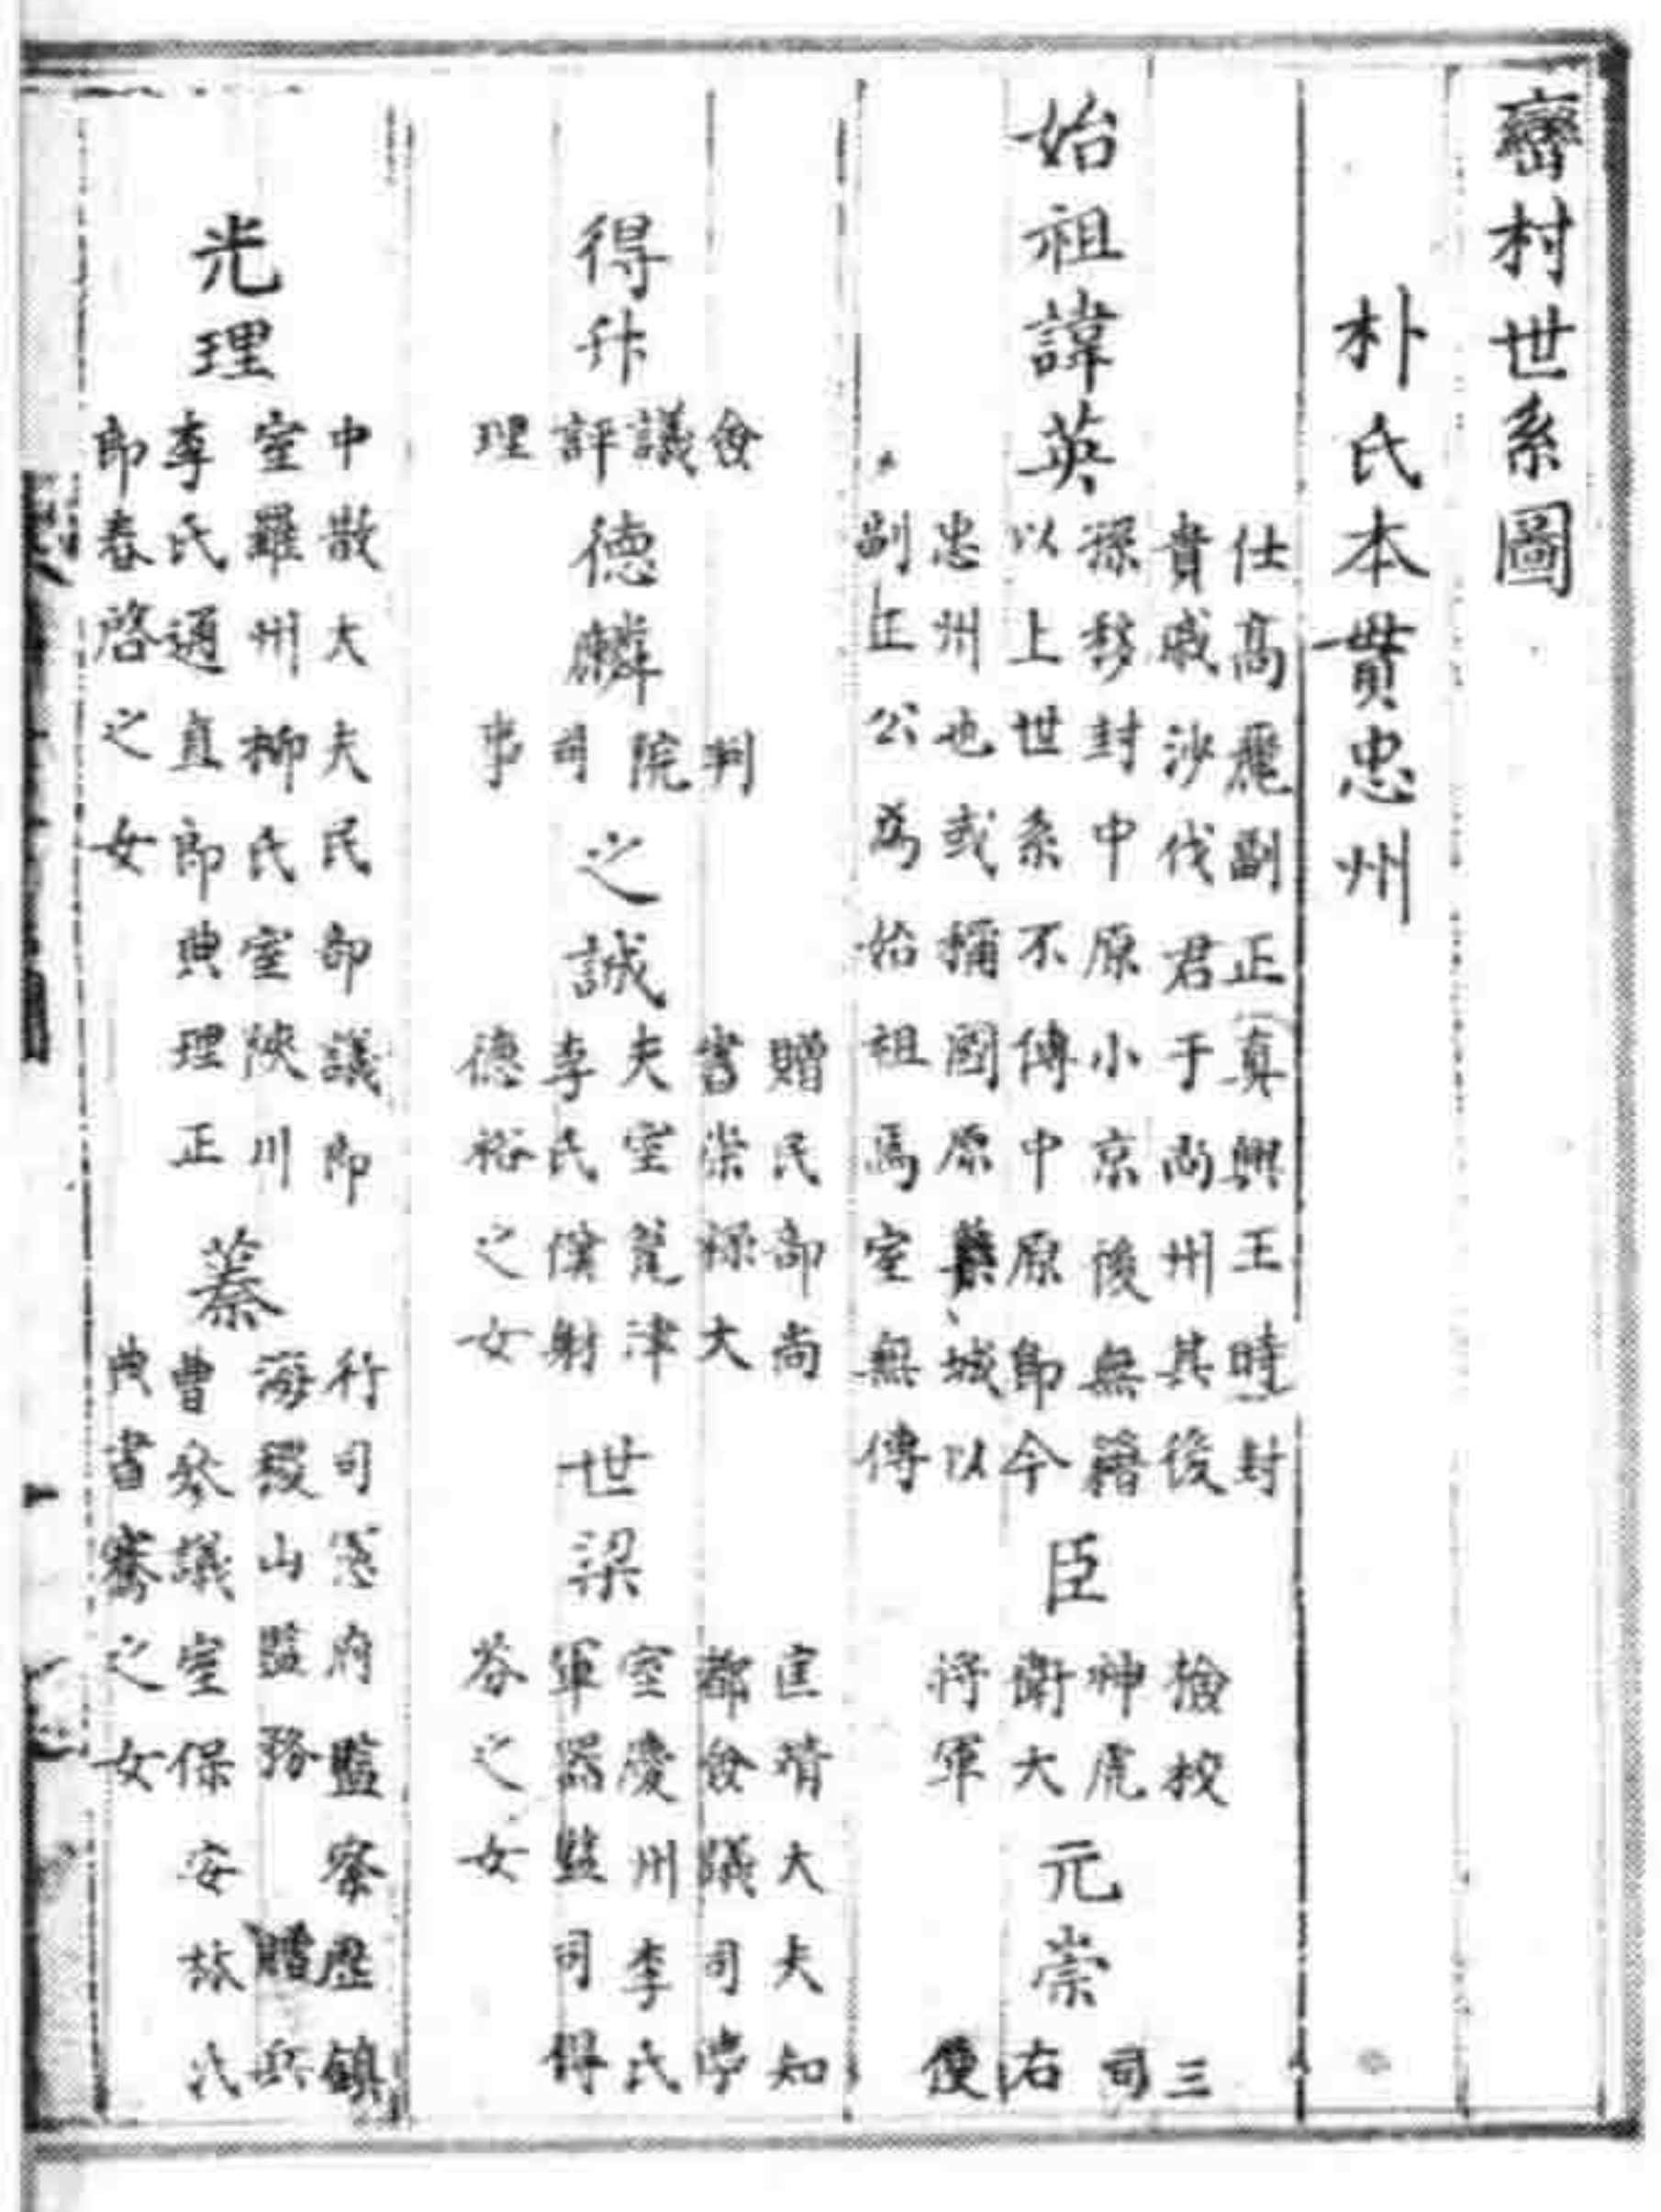 巒村世系圖
朴氏本貫忠州
始祖諱英
仕高麗副正(真興王時)封
貴戚沙伐君于尚州其後
孫移封中原小京後無籍
以上世系不傳中原即今
忠州也或稱國原蘂城以
副正公爲始祖焉室無傳
臣
檢校
神虎
衛大
将軍
元崇
三
司
右
使
得升
僉
議
評
理
德麟
判
院
司
事
之誠
贈民部尚
書崇祿大
夫室瓮津
李氏僕射
德裕之女
世梁
匡靖大夫知
都僉議司事
室慶州李氏
軍器監司得
芬之女
光理
中散大夫民部議郎
室羅州柳氏室陝川
李氏通直郎典理正
郎春啓之女
蓁
行司憲府監察歷鎮
海稷山監務贈兵
曹叅議室保安林氏
典書騫之女